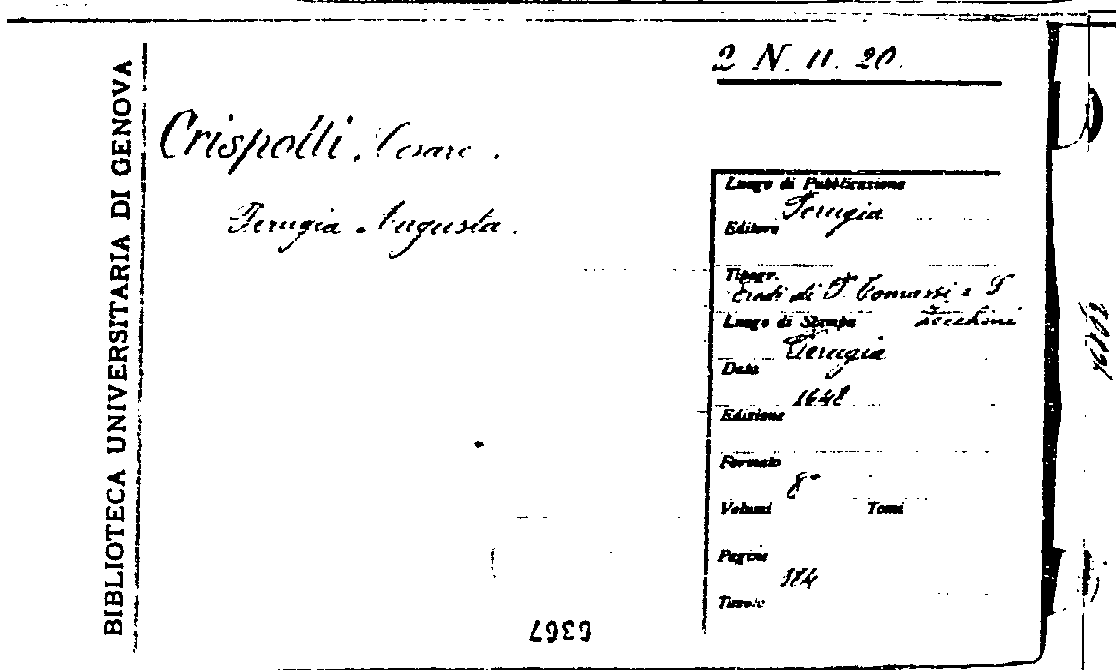 BIBLIOTECA UNIVERSITARIA DI GENOVA
2 N. 11. 20.
Crispolti, Cesare.
Perugia Augusta.
Luogo di Pubblicazione
Perugia
Editore
Tipogr.
Eredi di P. Tomassi e
Zecchini
Luogo di Stampa
Perugia
Data
1648
Edizione
Formato
8°
Volumi Tomi
Pagine
184
Tavole